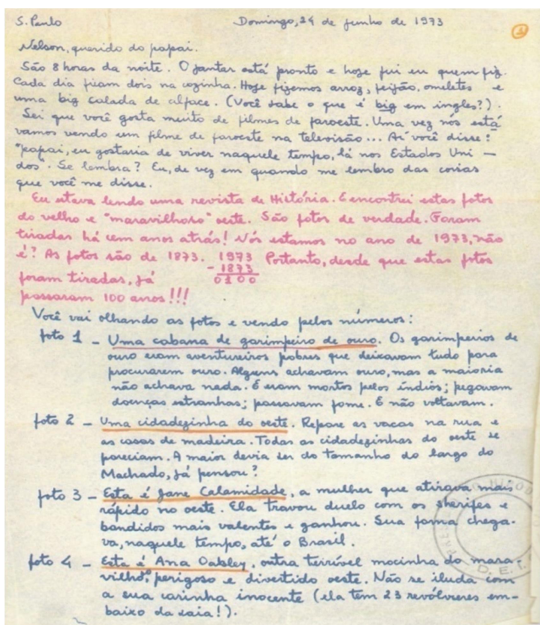 S. Paulo Domingo, 24 de junho de 1973 1
Nelson, querido do papai.
São 8 horas da noite. O jantar está pronto e hoje fui eu quem fiz.
Cada dia ficam dois na cozinha. Hoje fizemos arroz, feijão, omeletes e
uma big salada de alface. (Você sabe o que é big em ingles?).
Sei que você gosta muito de filmes de faroeste. Uma vez nós está
vamos vendo um filme de faroeste na televisão... Aí você disse:
"papai, eu gostaria de viver naquele tempo, lá nos Estados Uni-
dos". Se lembra? Eu, de vez em quando me lembro das coisas
que você me disse.
Eu estava lendo uma revista de História. E encontrei estas fotos
do velho e "maravilhoso" oeste. São fotos de verdade. Foram
tiradas há cem anos atrás! Nós estamos no ano de 1973, não
é? As fotos são de 1873. 1973 Portanto, desde que estas fotos
- 1873
foram tiradas, já 0100
passaram 100 anos!!!
Você vai olhando as fotos e vendo pelos números:
foto 1 - Uma cabana de garimpeiro de ouro. Os garimpeiros de
ouro eram aventureiros pobres que deixavam tudo para
procurarem ouro. Alguns achavam ouro, mas a maioria
não achava nada. E eram mortos pelos índios; pegavam
doenças estranhas; passavam fome. E não voltavam.
foto 2 - Uma cidadezinha do oeste. Repare as vacas na rua e
as casas de madeira. Todas as cidadezinhas do oeste se
pareciam. A maior devia ser do tamanho do largo do
Machado, já pensou?
foto 3 - Esta é Jane Calamidade, a mulher que atirava mais
rápido no oeste. Ela travou duelo com os sherifes e
bandidos mais valentes e ganhou. Sua fama chega-
va, naquele tempo, até o Brasil.
foto 4 - Esta é Ana Oakley, outra terrível mocinha do mara-
vilhoso, perigoso e divertido oeste. Não se iluda com
a sua carinha inocente (ela tem 23 revólveres em-
baixo da saia!).
D.E.